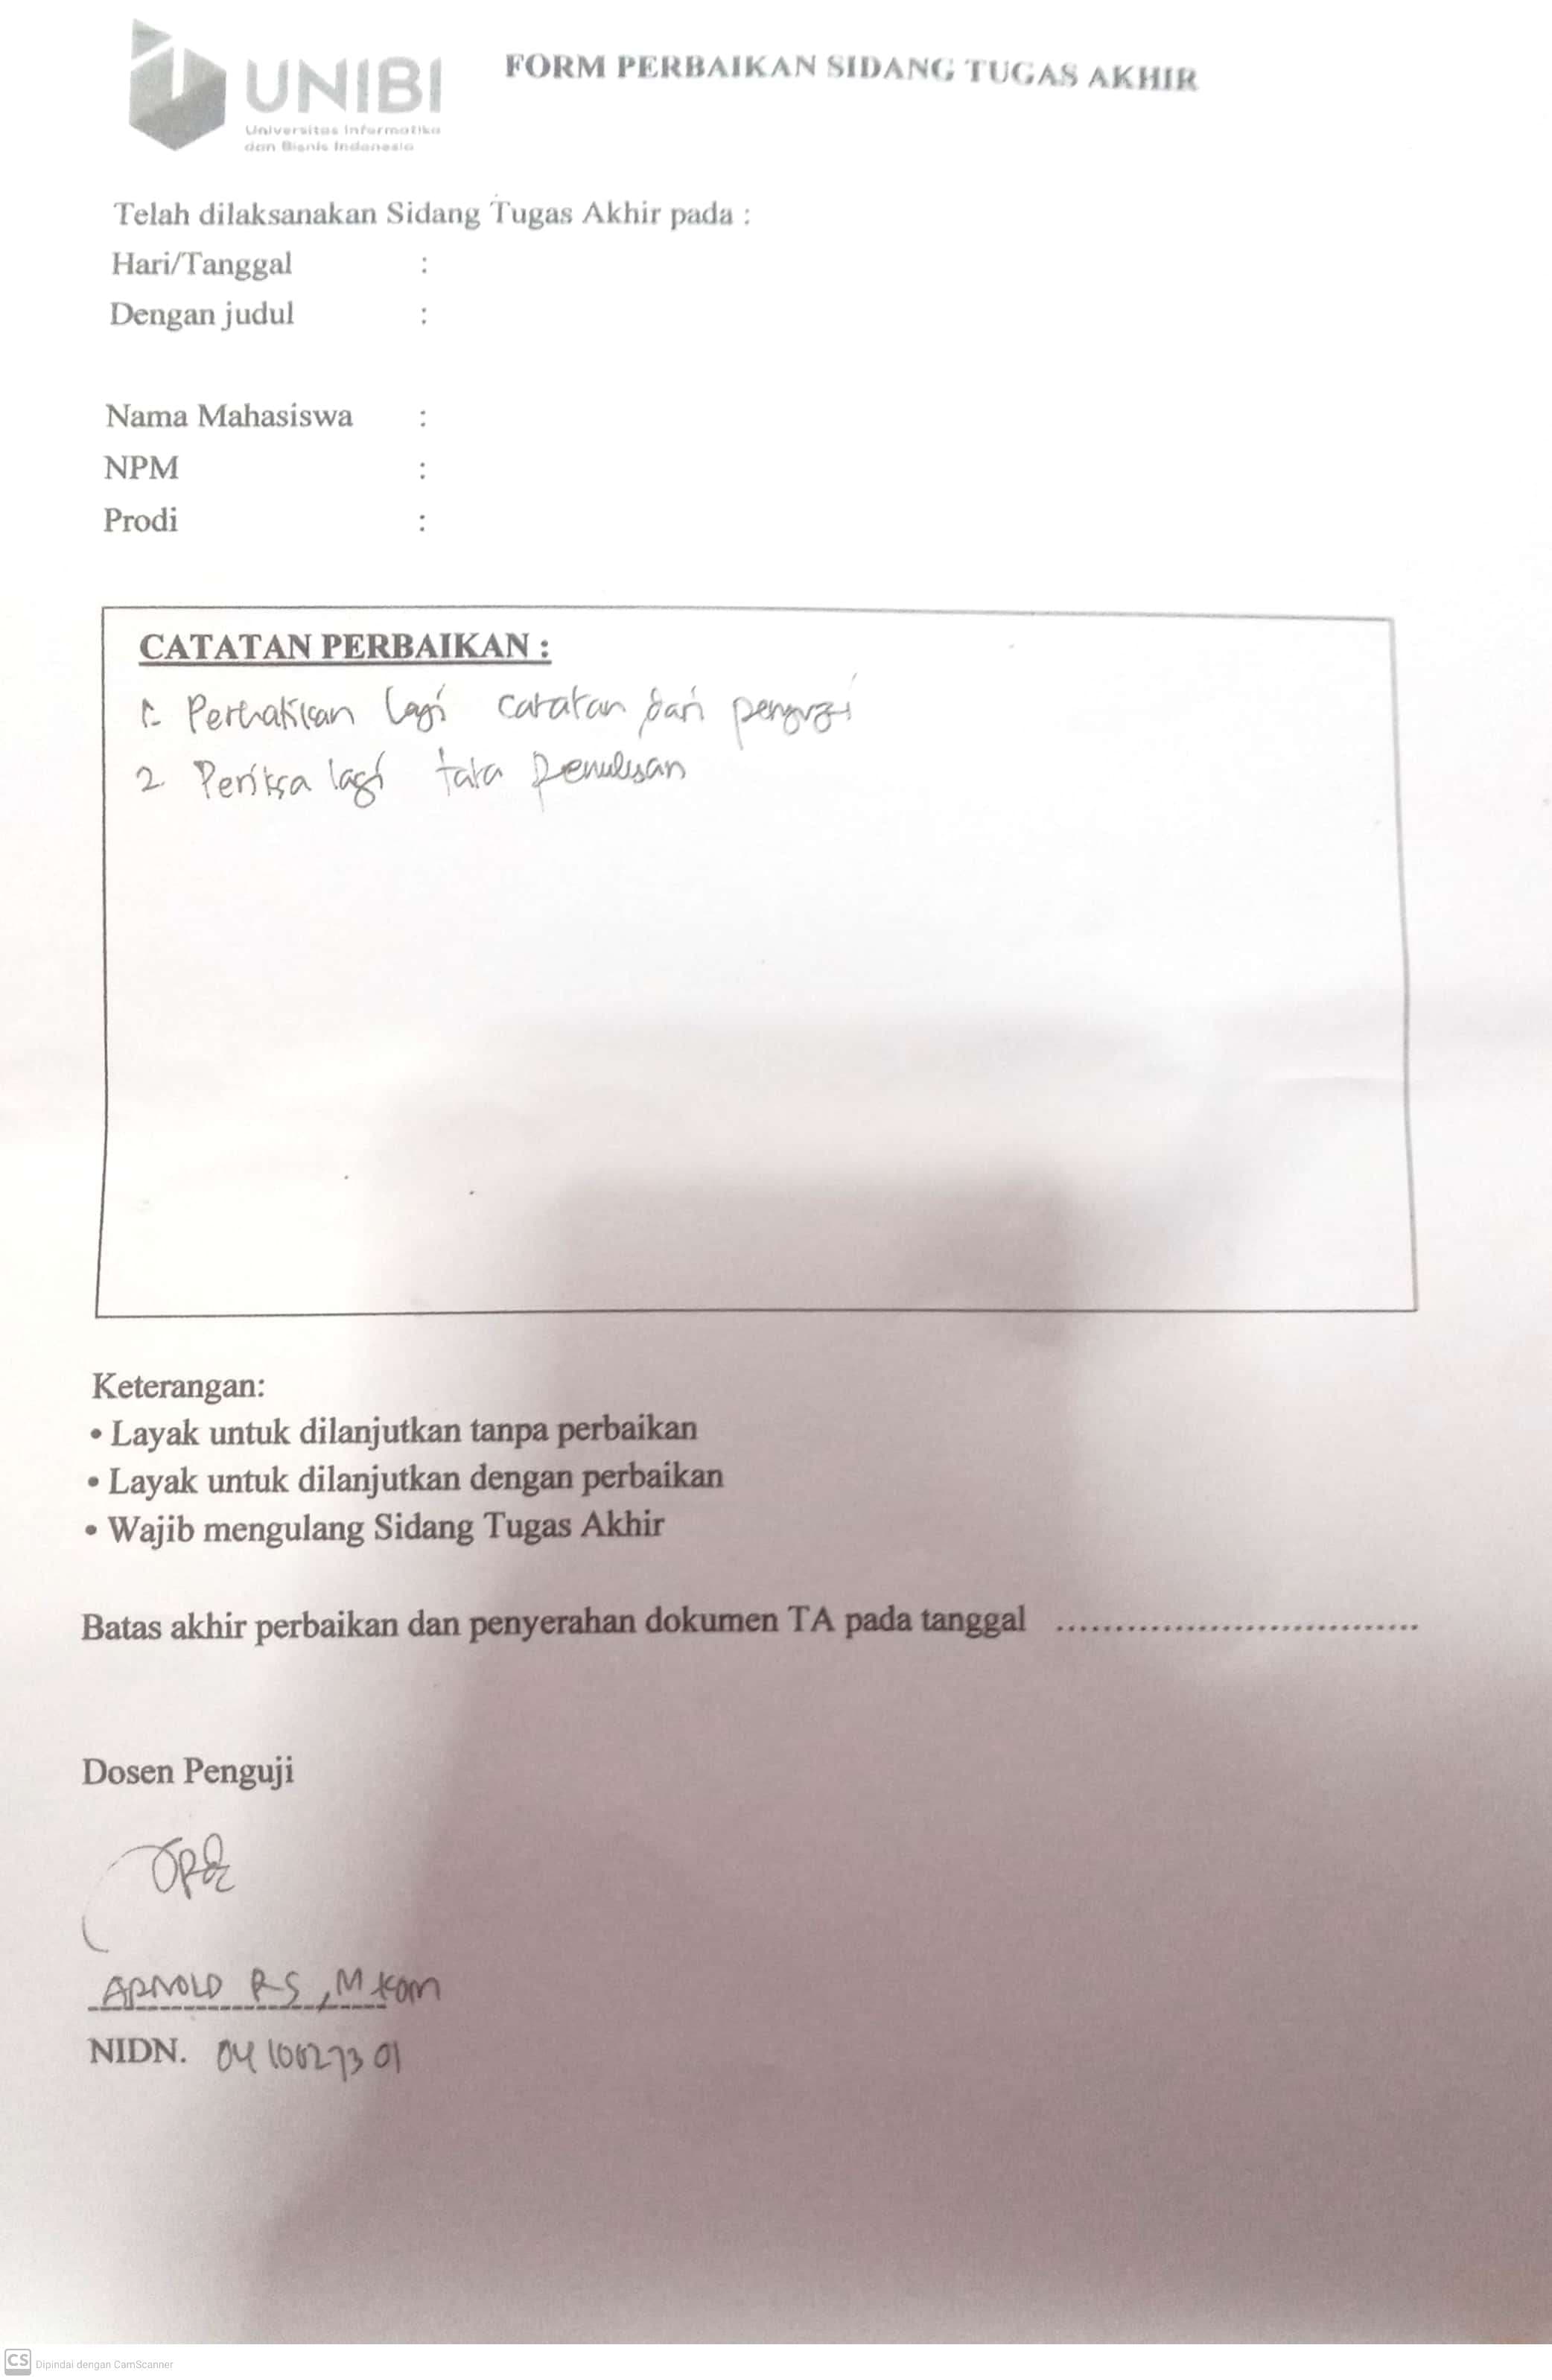 UNIBI
Universitas Informatika
dan Bisnis Indonesia
FORM PERBAIKAN SIDANG TUGAS AKHIR
Telah dilaksanakan Sidang Tugas Akhir pada :
Hari/Tanggal :
Dengan judul :
Nama Mahasiswa :
NPM :
Prodi :
CATATAN PERBAIKAN :
1. Perhatikan lagi catatan dari penguji
2. Periksa lagi tata penulisan
Keterangan:
• Layak untuk dilanjutkan tanpa perbaikan
• Layak untuk dilanjutkan dengan perbaikan
• Wajib mengulang Sidang Tugas Akhir
Batas akhir perbaikan dan penyerahan dokumen TA pada tanggal ................................
Dosen Penguji
ARNOLD RS, M Kom
NIDN.
CS Dipindai dengan CamScanner